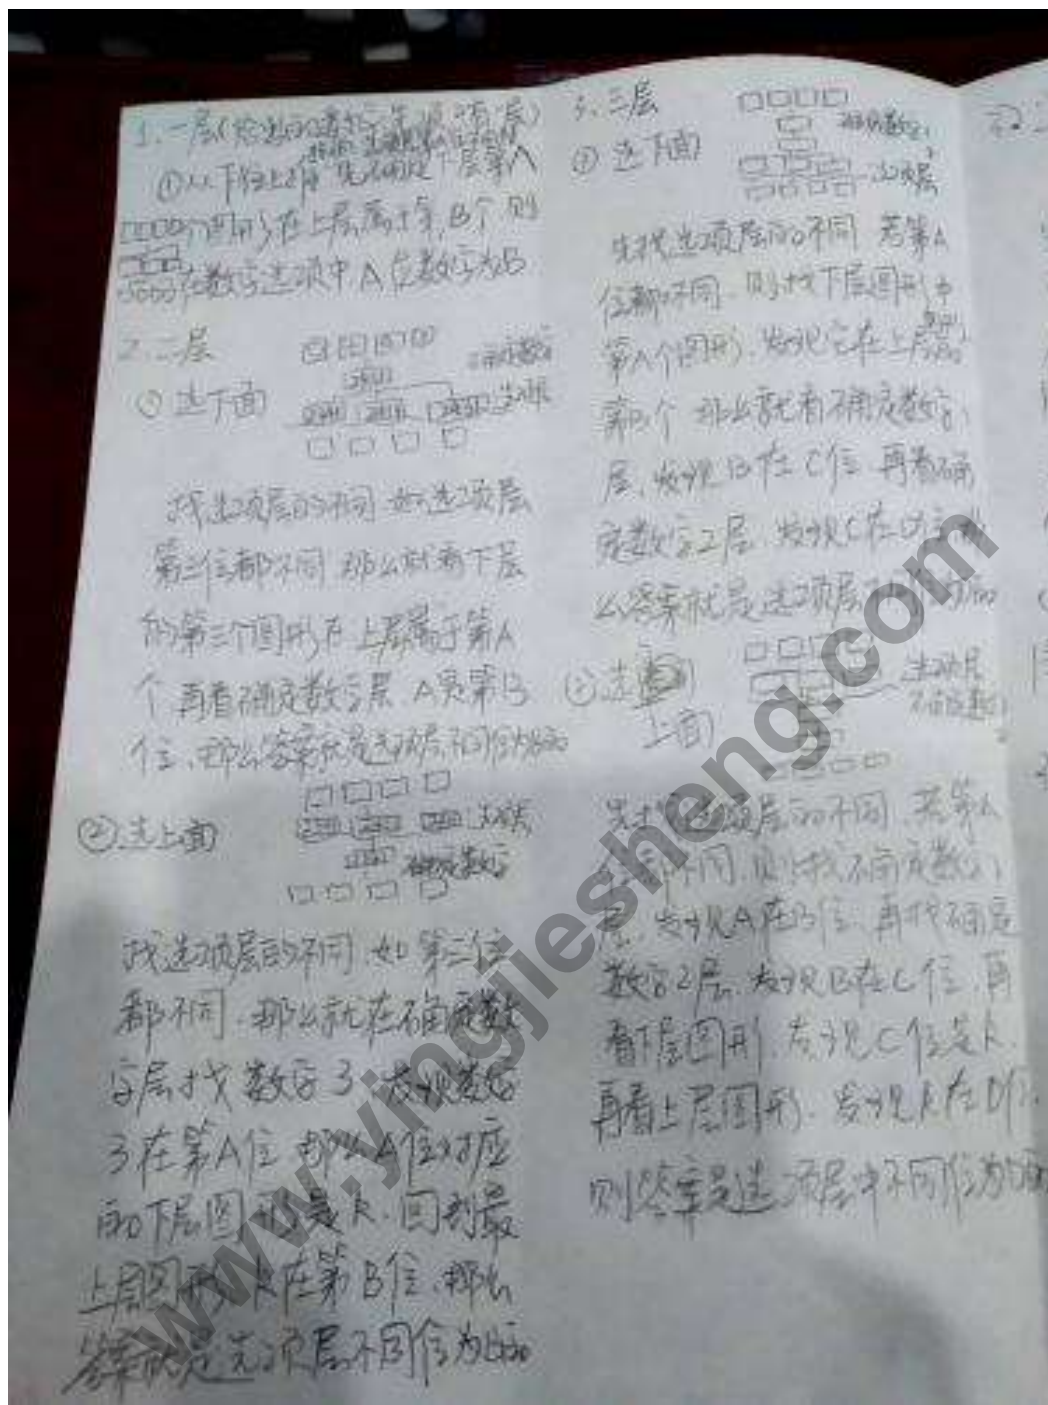 1. 一层
①从下往上推 先确定下层第A
个图形在上层属于第B个 则
数字选项中A位数字为B
2. 二层
① 选下面
选项层
找选项层的不同 如选项层
第三位都不同 那么就看下层
的第三个图形在上层属于第A
个 再看确定数字层 A是第B
位、那么答案就是选项层不同位为B的
②选上面
选项层
确定数字
找选项层的不同、如第三位
都不同、那么就在确定数
字层找数字3、发现数字
3在第A位 那么A位对应
的下层图形是K、回到最
上层图形K在第B位、那么
答案就是选项层不同位为B的
3. 三层
① 选下面
确定数字1
2
选项层
先找选项层的不同 若第A
位都不同、则找下层图形中
第A个图形、发现它在上层的
第B个 那么就看确定数字1
层、发现B在C位 再看确
定数字2层、发现C在D位 那
么答案就是选项层不同位为D的
② 选
上面
选项层
确定数字1
2
先找选项层的不同、若第A
位都不同、则找确定数字1
层、发现A在B位、再找确定
数字2层、发现B在C位、再
看下层图形、发现C位是K、
再看上层图形、发现K在D位、
则答案是选项层中不同位为D的
www.yingjiesheng.com